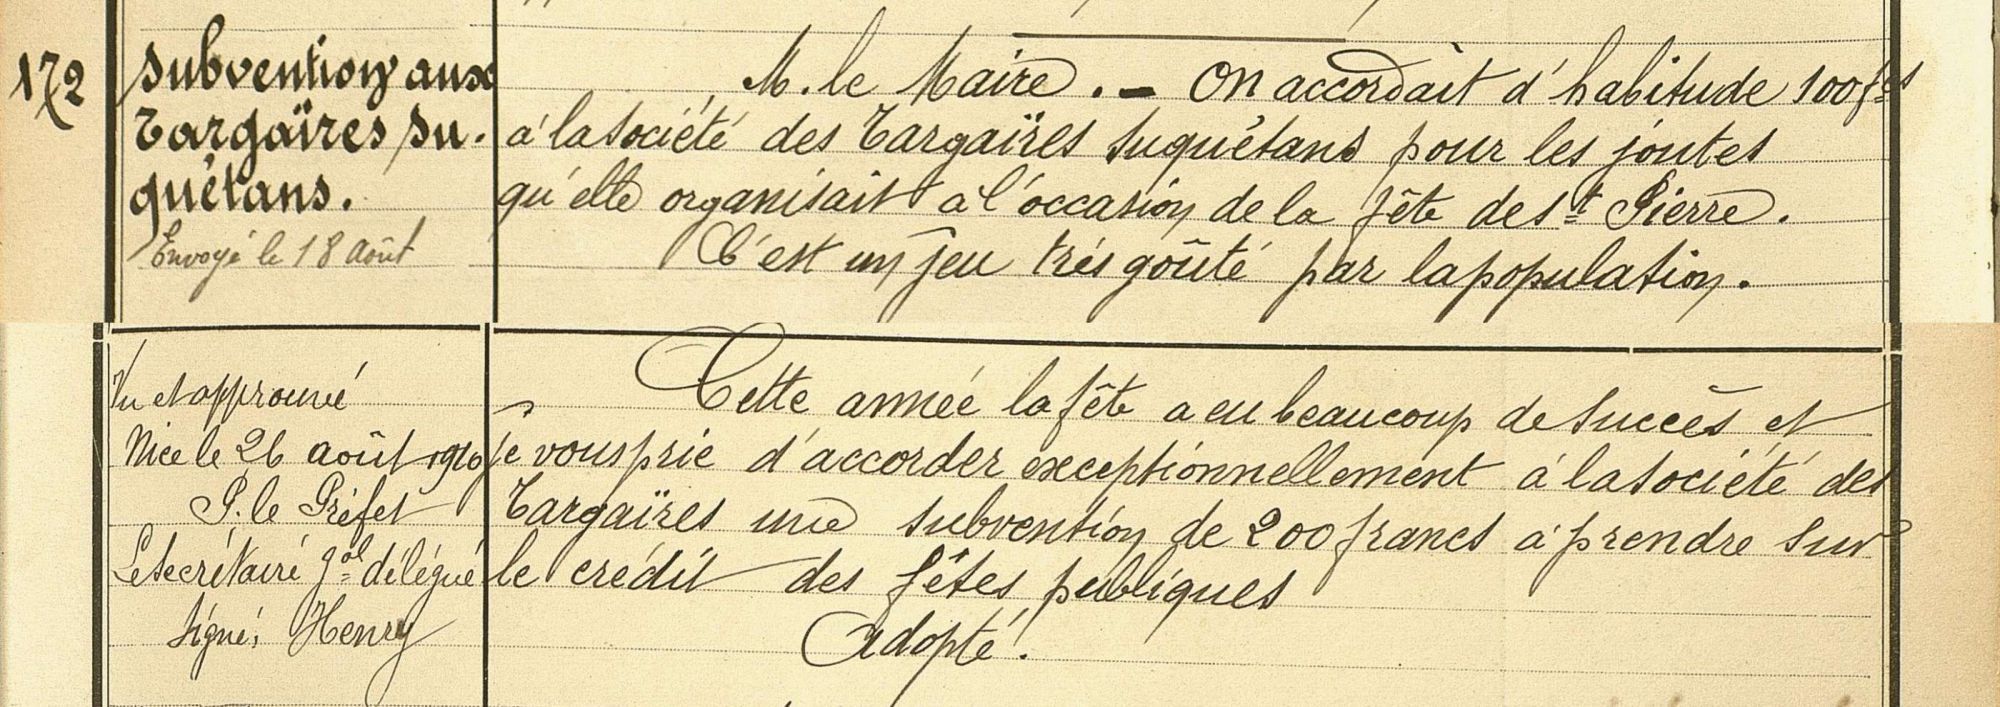 172
Subvention aux
Targaïres Su-
quétans.
Envoyé le 18 août
M. le Maire. — On accordait d'habitude 100 fcs
à la Société des Targaïres Suquétans pour les joutes
qu'elle organisait à l'occasion de la fête de St Pierre.
C'est un jeu très goûté par la population.
Vu et approuvé
Nice le 26 août 1920
P. le Préfet
Le Secrétaire gal délégué
Signé, Henry
Cette année la fête a eu beaucoup de succès et
je vous prie d'accorder exceptionnellement à la Société des
Targaïres une subvention de 200 francs à prendre sur
le crédit des fêtes publiques
Adopté.